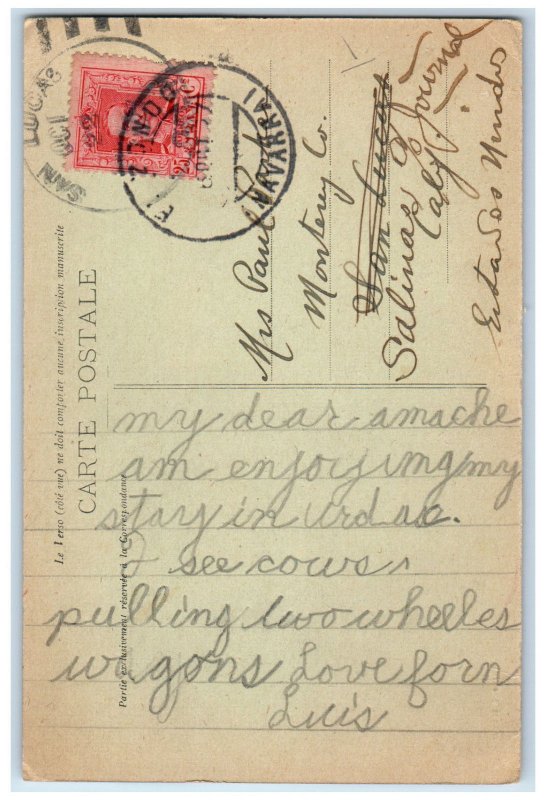 CARTE POSTALE
Le Verso (côté vue) ne doit comporter aucune inscription manuscrite
Partie exclusivement réservée à la Correspondance
SAN LUCAS
OCT
NAVARRA
25
Mrs Paul
Monterey Co.
San Lucas
Salinas Journal
Caly.
Estados Unidos
my dear amache
am enjoyimg my
stay in urdac.
I see cows
pulling two wheeles
wagons Love forn
Luis